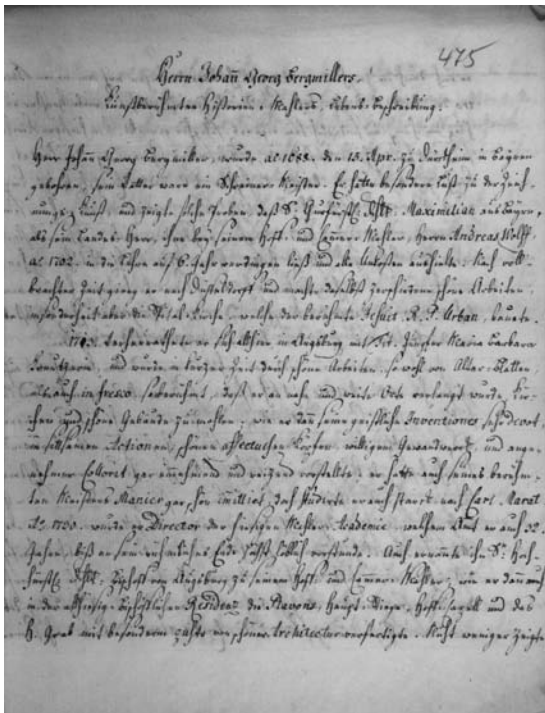 475
Herrn Johañ Georg Bergmillers,
Kunstberühmten Historien-Mahlers, Lebens-Beschreibung.
Herr Johañ Georg Bergmiller, wurde aº 1688. den 15. Apr. zu Dürkheim in Bayern
gebohren, sein Vatter ware ein Schreiner-Meister. Er hatte besondere Lust zu der Zeich-
nungs-Kunst, und zeigte solche Proben, daß Sr. Churfürstl. Dhlt. Maximilian aus Bayrn,
als sein Landes-Herr, ihne bey seinem Hoff- und Cammer-Mahler, Herrn Andreas Wolff
aº 1702. in die Lehre auf 6. Jahr verdingen ließ und alle Unkosten auszahlte. Nach voll-
brachter Zeit gieng er nach Düsseldorff und machte daselbst verschiedene schöne Arbeiten,
insonderheit aber die Spital-Kirche, welche der berühmte Jesuit R. P. Urban, bauete.
verheurathete er sich allhier in Augspurg mit Tit. Jungfer Maria Barbara
und wurde in kurzer Zeit durch schöne Arbeiten, sowohl von Altar-Blatten,
als auch in fresco, so berühmt, daß er an nahe und weite Orte verlangt wurde, Kir-
chen und schöne Gebäude zu mahlen; wie er dañ seine geistliche Inventiones sehr devot,
in seltsamen Actionen, schönen affectuosen Köpfen, völligem Gewandwerk, und ange-
nehmer Collorit gar einnehmend und reizend vorstellte; er hatte auch seines berühm-
ten Meisters Manier gar schön imittirt, doch studirte er auch starck nach Carl Marat
Aº 1730. wurde er Director der hiesigen Mahler-Academie, welchem Amt er auch 32.
Jahr, biß an sein rühmliches Ende höchst löblich vorstunde. Auch ernannte ihn Sr. Hoch-
fürstl. Dhlt. Bischoff von Augspurg zu seinem Hoff- und Cammer-Mahler; wie er dañ auch
in der allhiesig-Bischöfflichen Residenz die Plavons, Haupt-Stiege, Hoff-Capell und das
H. Grab mit besonderm von schöner Architectur verfertigte. Nicht weniger zeigte